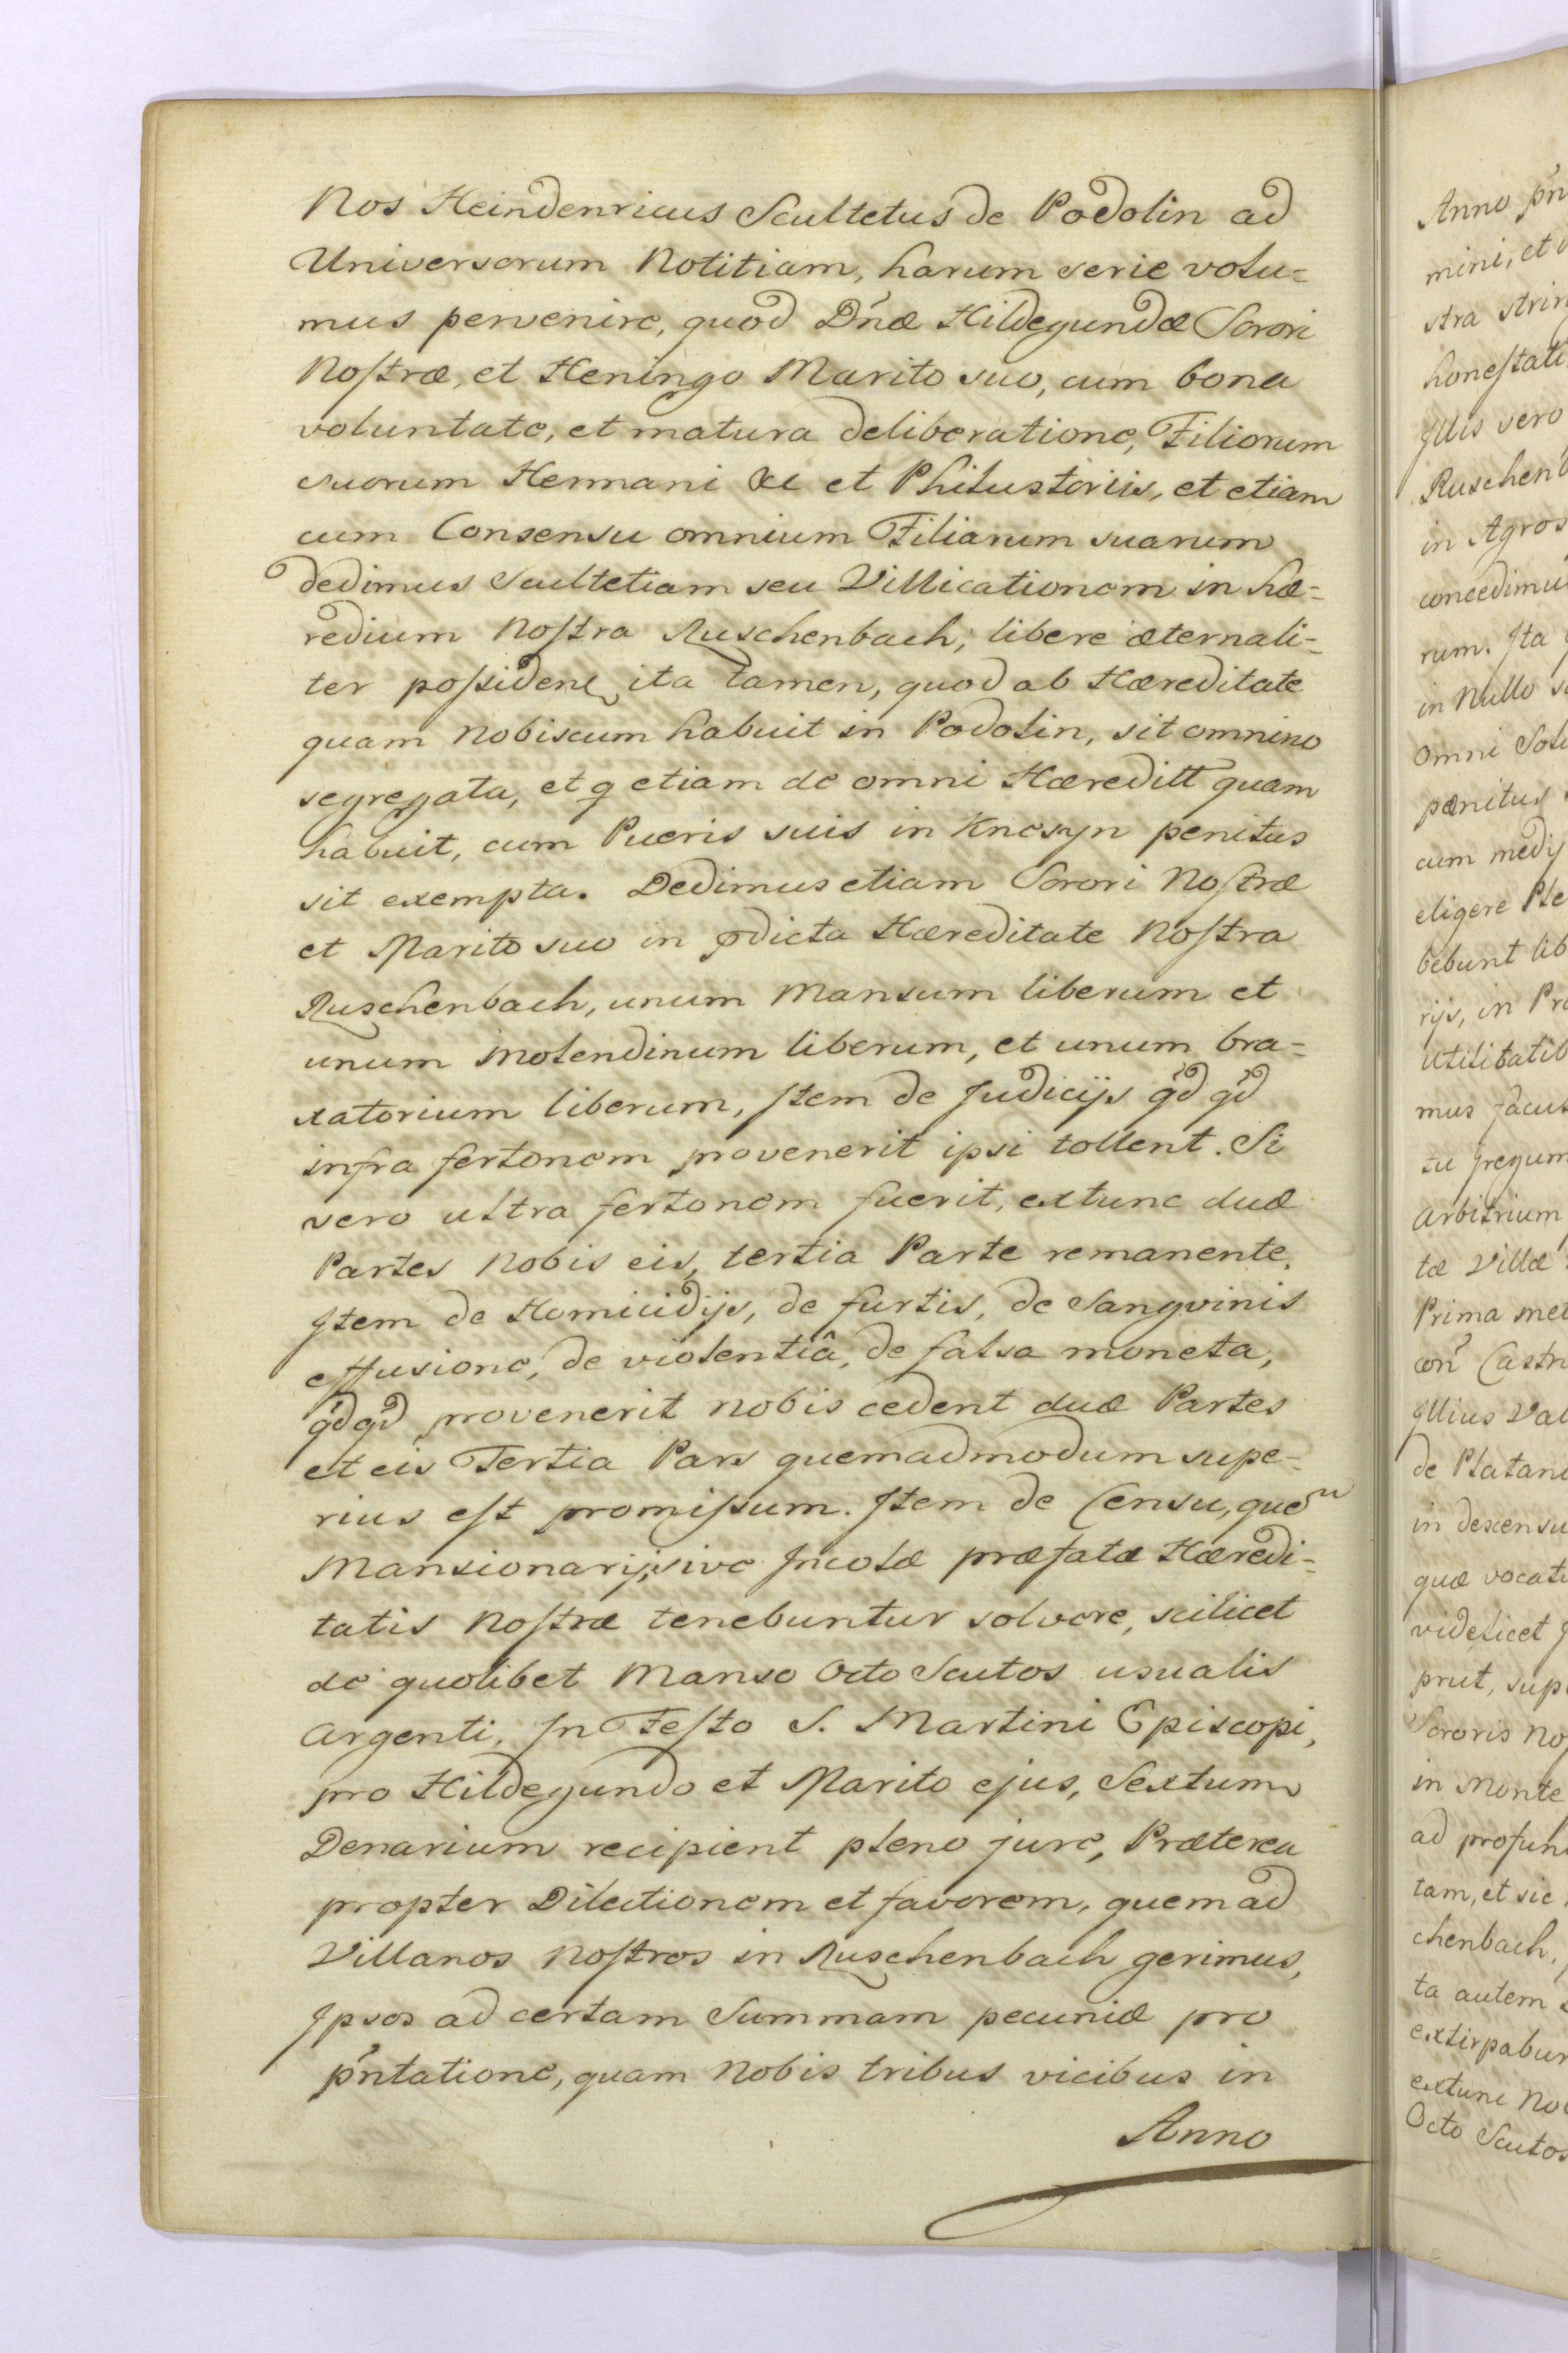 Nos Heindenricus Scultetus de Podolin ad
Universorum Notitiam, harum serie volu=
mus pervenire, quod Dn̄æ Hildegundæ Sorori
Nostræ, et Heningo Marito suo, cum bona
voluntate, et matura deliberatione, Filiorum
suorum Hermani &c et Philustoriis, et etiam
cum Consensu omnium Filiarum suarum
dedimus Scultetiam seu Villicationem in hæ=
redium Nostra Ruschenbach, libere æternali=
ter possidend, ita tamen, quod ab Hæreditate
quam nobiscum habuit in Podolin, sit omnino
segregata, et q etiam de omni Hæreditt quam
habuit, cum Pueris suis in Knesyn penitus
sit exempta. Dedimus etiam Sorori Nostræ
et Marito suo in pdicta Hæreditate Nostra
Ruschenbach, unum Mansum liberum et
unum molendinum liberum, et unum bra=
xatorium liberum, Item de Judicijs qd̄ qd̄
infra fertonem provenerit ipsi tollent. Si
vero ultra fertonem fuerit, extunc duæ
Partes Nobis eis, tertia Parte remanente.
Item de Homicidijs, de furtis, de Sangvinis
effusione, de violentiâ, de falsa moneta,
qd̄qd̄ provenerit nobis cedent duæ Partes
et eis Tertia Pars quemadmodum supe=
rius est promissum. Item de Censu, quem
Mansionarij, sive Incolæ præfatæ Hæredi=
tatis Nostræ tenebuntur solvere, scilicet
de quolibet Manso Octo Scutos usualis
Argenti, In Festo S. Martini Episcopi,
pro Hildegundo et Marito ejus, Sextum
Denarium recipient pleno jure, Præterea
propter Dilectionem et favorem, quem ad
Villanos Nostros in Ruschenbach gerimus,
Ipsos ad certam Summam pecuniæ pro
pn̄tatione, quam Nobis tribus vicibus in
Anno
Anno pn̄
mini, et
stra
honestati
Illis vero
Ruschenb
in Agros
concedimu
rum. Ita
in Nullo
omni
pænitus
cum medij
eligere
bebunt lib
rijs, in Pr
utilitatib
mus facul
tu
Arbitrium
tæ Villæ
Prima met
con̄ Castr
Illius Val
de Platani
in descensu
quæ vocati
videlicet
prut, sup
Sororis No
in Monte
ad profun
tam, et sic
chenbach,
ta autem
extirpabun
extunc No
Octo Scutos